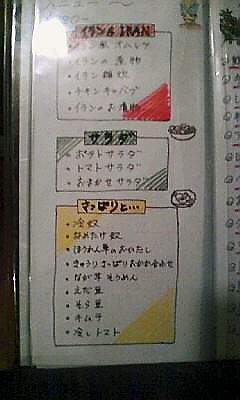 メニュー～
イラン & IRAN
・イラン風オムレツ
・イランの煮物
・イラン雑炊
・チキンキャバブ
・イランのお漬物
サラダ
・ポテトサラダ
・トマトサラダ
・おまかせサラダ
さっぱりと…
・冷奴
・なめたけ奴
・ほうれん草のおひたし
・きゅうりさっぱりおかか合わせ
・なが芋そうめん
・えだ豆
・そら豆
・キムチ
・冷しトマト